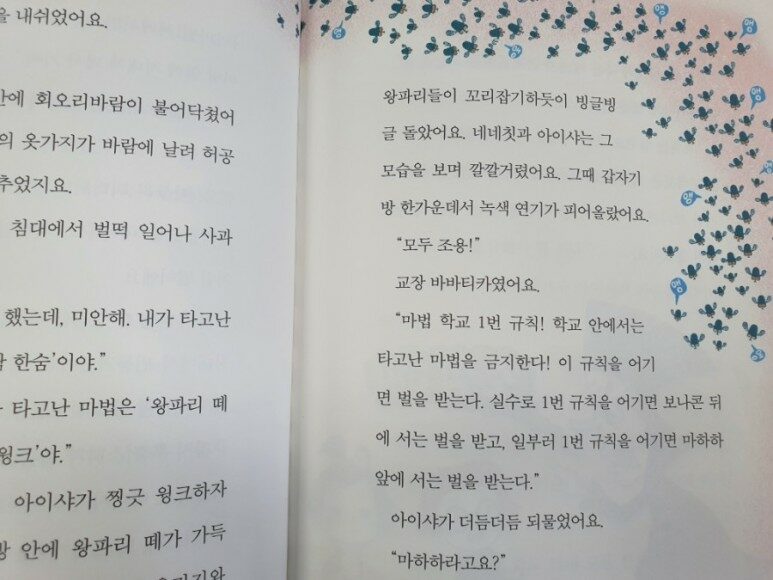 을 내쉬었어요.
안에 회오리바람이 불어닥쳤어
의 옷가지가 바람에 날려 허공
추었지요.
침대에서 벌떡 일어나 사과
했는데, 미안해. 내가 타고난
한숨’이야.”
타고난 마법은 ‘왕파리 떼
윙크’야.”
아이샤가 찡긋 윙크하자
방 안에 왕파리 떼가 가득
왕파리들이 꼬리잡기하듯이 빙글빙
글 돌았어요. 네네칫과 아이샤는 그
모습을 보며 깔깔거렸어요. 그때 갑자기
방 한가운데서 녹색 연기가 피어올랐어요.
“모두 조용!”
교장 바바티카였어요.
“마법 학교 1번 규칙! 학교 안에서는
타고난 마법을 금지한다! 이 규칙을 어기
면 벌을 받는다. 실수로 1번 규칙을 어기면 보나콘 뒤
에 서는 벌을 받고, 일부러 1번 규칙을 어기면 마하하
앞에 서는 벌을 받는다.”
아이샤가 더듬더듬 되물었어요.
“마하하라고요?”
앵
앵
앵
앵
앵
앵
앵
앵